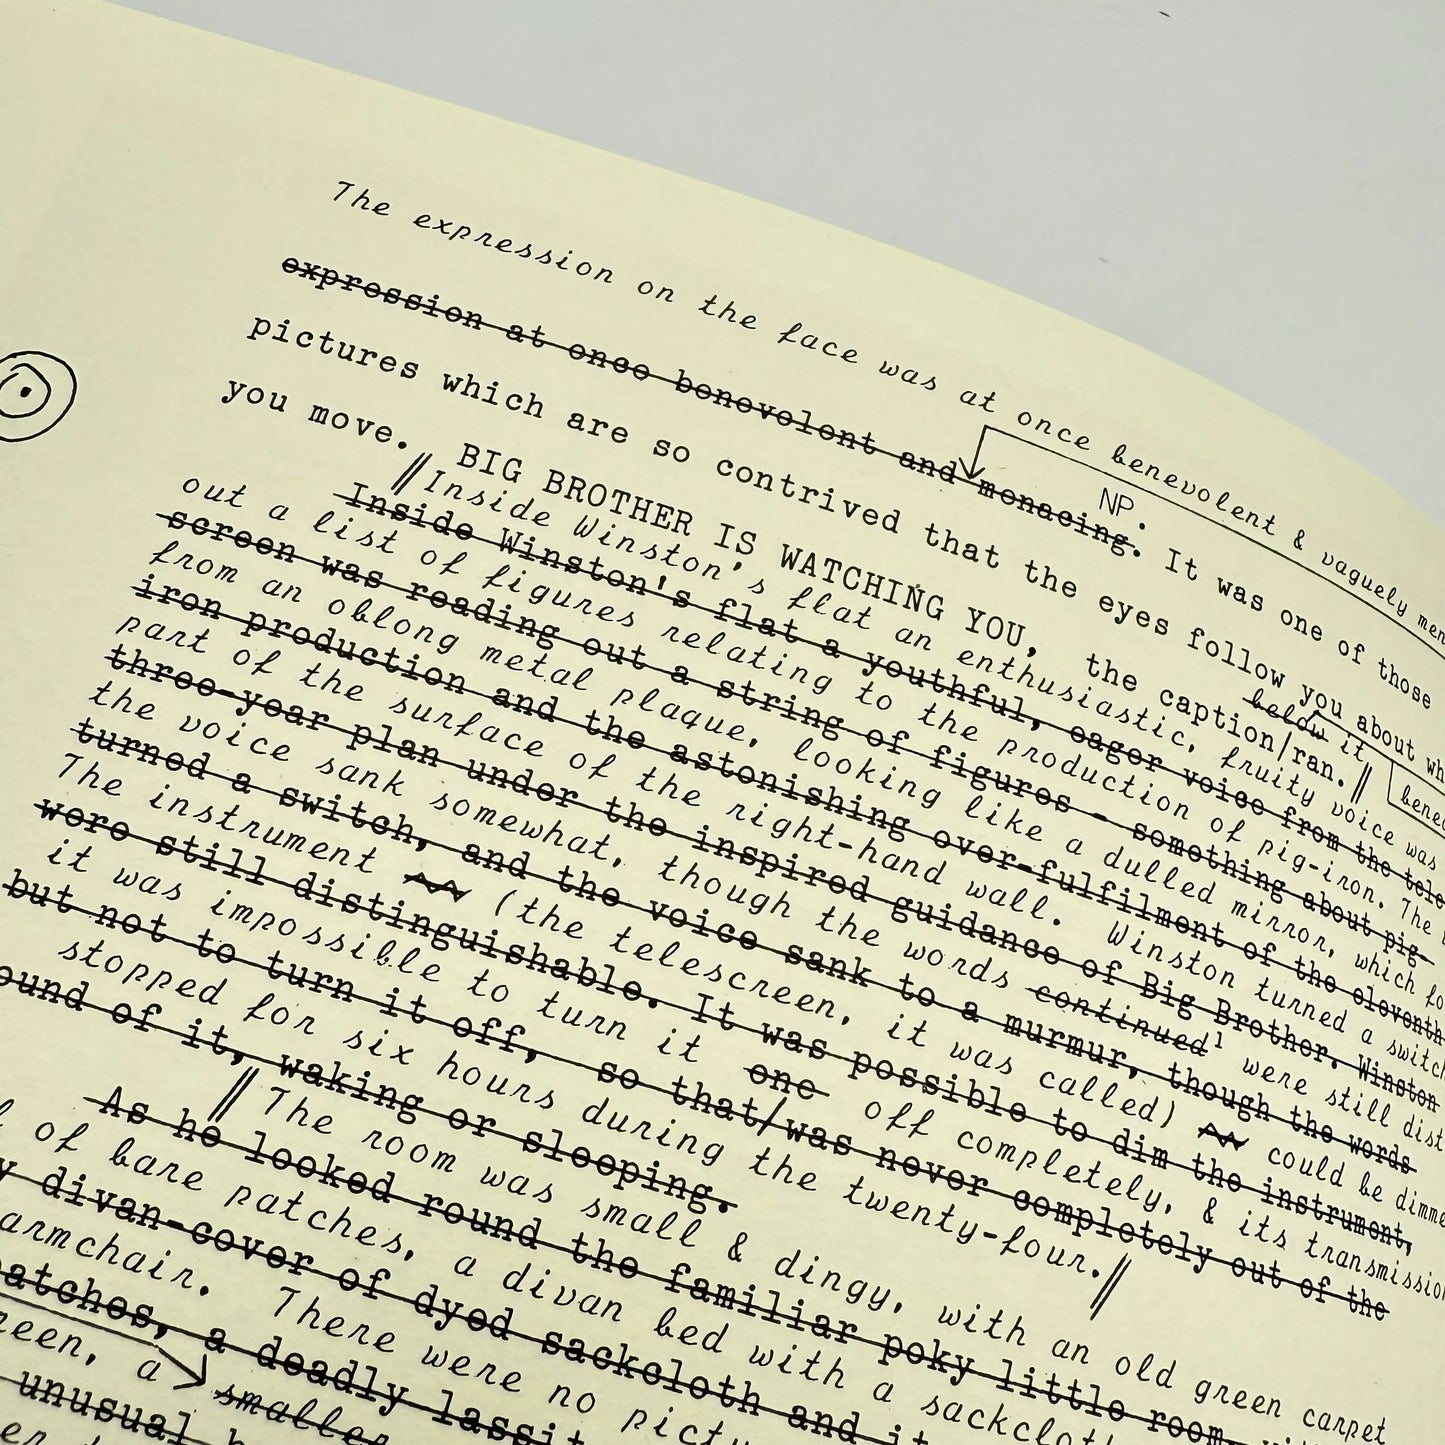 The expression on the face was at once benevolent & vaguely men
expression at once benevolent and menacing. It was one of those
NP.
pictures which are so contrived that the eyes follow you about wh
below it
you move. BIG BROTHER IS WATCHING YOU, the caption/ran.//
bene
//Inside Winston's flat an enthusiastic, fruity voice was
Inside Winston's flat a youthful, eager voice from the tele
out a list of figures relating to the production of pig-iron. The
screen was reading out a string of figures - something about pig-
from an oblong metal plaque, looking like a dulled mirror, which fo
iron production and the astonishing over-fulfilment of the eleventh
part of the surface of the right-hand wall. Winston turned a switch
three-year plan under the inspired guidance of Big Brother. Winston
the voice sank somewhat, though the words continued were still dist
turned a switch, and the voice sank to a murmur, though the words
The instrument (the telescreen, it was called) could be dimme
were still distinguishable. It was possible to dim the instrument,
it was impossible to turn it one off completely, & its transmission
but not to turn it off, so that/was never completely out of the
stopped for six hours during the twenty-four.//
ound of it, waking or sleeping.
//The room was small & dingy, with an old green carpet
As he looked round the familiar poky little room, wit
of bare patches, a divan bed with a sackclot
y divan-cover of dyed sackcloth and it
armchair. There were no pictu
patches, a deadly lassit
reen, a smaller
unusual